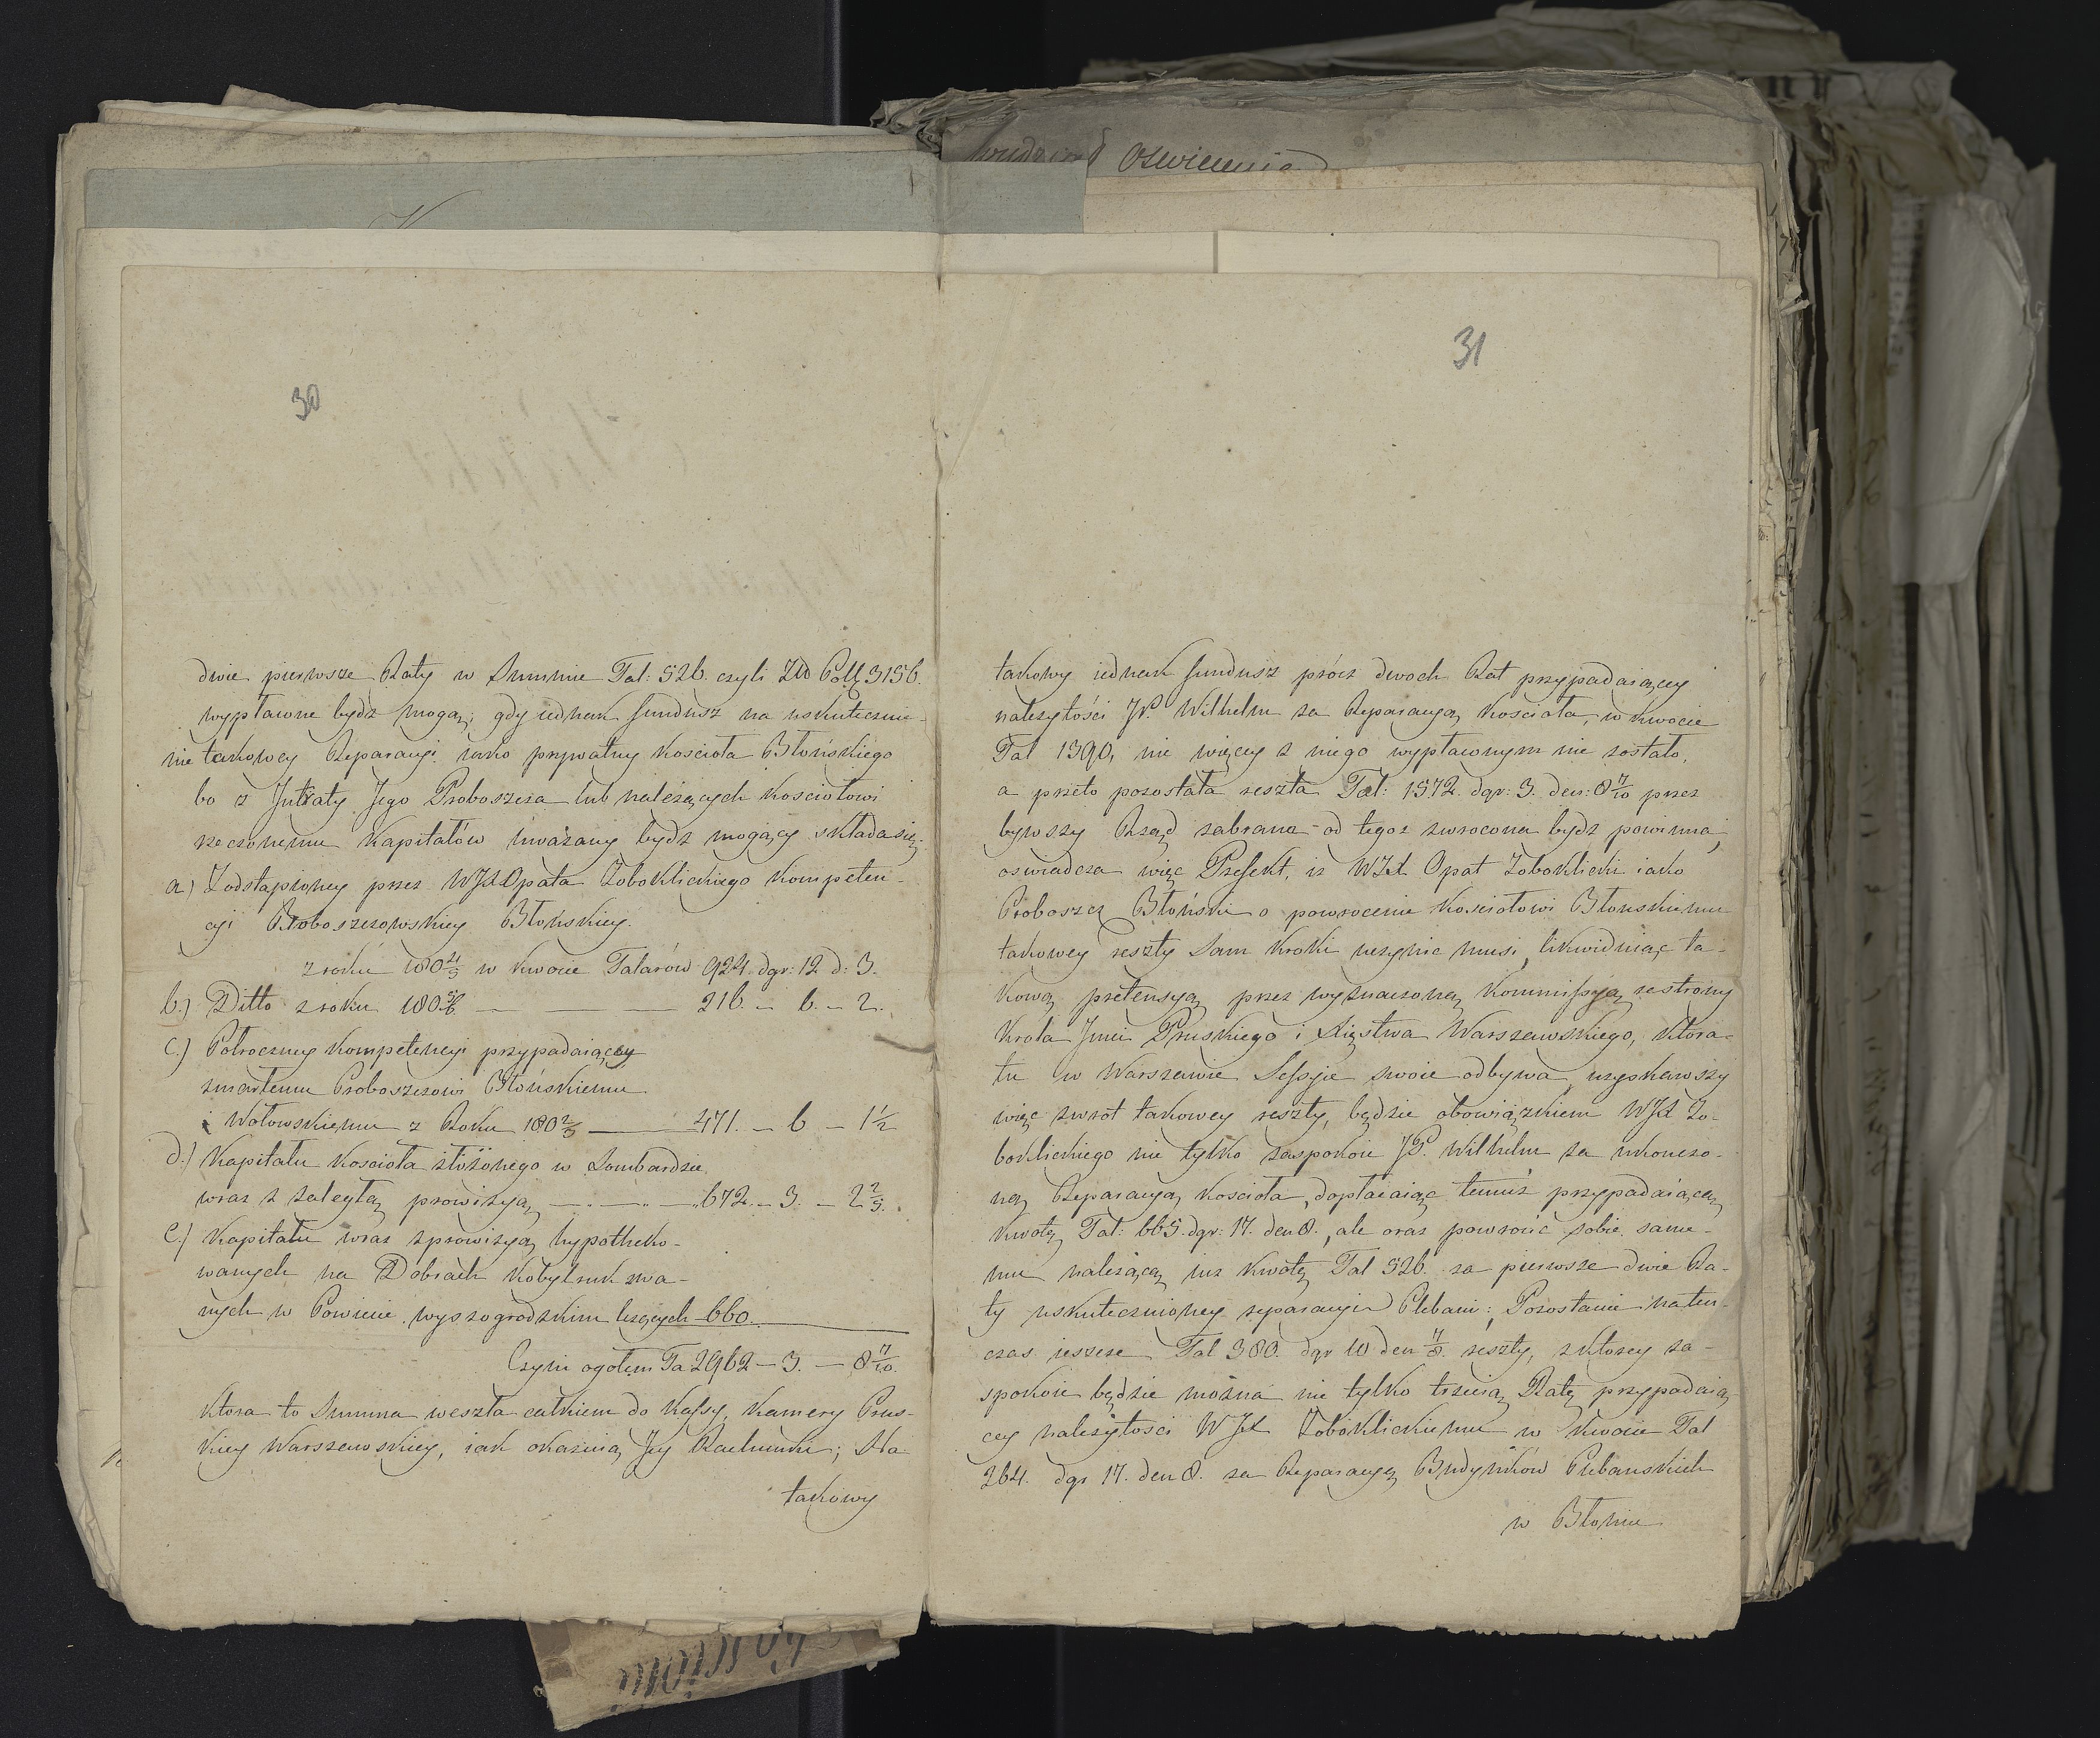 30
dwie pierwsze Raty w Summie Tal: 526. czyli Zło Poll 3156.
wypłacone bydz mogą; gdy iednak fundusz na uskutecznie-
nie takowey Reparacyi iako prywatny Kościoła Błońskiego
bo z Jntraty Jego Proboszcza lub należących Kościołowi
rzeczonemu Kapitałów uważany bydz mogący składa się:
a) Z odstąpioney przez WJX Opata Zoboklickiego Kompeten-
cyi Proboszczowskiey Błońskiey.
z roku 180 4/5 w kwocie Talarów 924. dgr: 12 d: 3.
b.) Ditto z roku 180 5/6 — — — 216. — 6. — 2.
c.) Połroczney Kompetencyi przypadaiącey
zmarłemu Proboszczowi Błońskiemu
i Wołowskiemu z Roku 180 2/3 — 471. — 6 — 1 1/2
d.) Kapitału Kościoła złożonego w Lombardzie
wraz z zaległą prowizyą — .. — .. — .. 672. — 3. — 2 2/5.
e.) Kapitału wraz z prowizyą hypotheko-
wanych na Dobrach Kobylnik zwa-
nych w Powiecie wyszogrodzkim leżących 660.
Czyni ogołem Ta 2962 — 3. — 8 7/10.
ktora to Summa weszła całkiem do Kassy Kamery Prus-
kiey Warszawskiey, iak okazuią Jey Rachunki; Na
takowy
31
takowy iednak fundusz prócz dwoch Rat przypadaiącey
należytości JP. Wilhelm za Reparacyą Kościoła, w kwocie
Tal 1390, nic więcey z niego wypłaconym nie zostało,
a przeto pozostała reszta Tal: 1572. dgr: 3. den: 8 7/10 przez
bywszy Rząd zabrana od tegoż zwrocona bydz powinna,
oswiadcza więc Prefekt, iz WJX Opat Zoboklicki iako
Proboszcz Błoński o powrocenie Kościołowi Błońskiemu
takowey reszty Sam kroki uczynic musi, likwiduiąc ta-
kową pretensyą przez wyznaczoną Kommissyą ze strony
Krola Jmci Pruskiego i Xięstwa Warszawskiego, ktora
tu w Warszawie Sessyie swoie odbywa, uzyskawszy
więc zwrot takowey reszty, będzie obowiązkiem WJX Zo-
boklickiego nie tylko zaspokoić JP. Wilhelm za ukończo-
ną Reparacyą Kościoła, dopłacaiąc temuż przypadaiącą
kwotę Tal: 665. dgr: 17. den 8., ale oraz powrocić sobie same-
mu należącą iuż kwotę Tal 526. za pierwsze dwie Ra-
ty uskutecznioney reparacyi Plebani; Pozostanie naten-
czas ieszcze Tal 380. dgr 10 den 7/8. reszty, z ktorey za-
spokoić będzie można nie tylko trzecią Ratę przypadaią-
cey należytości WJX Zoboklickiemu w kwocie Tal
264. dgr 17. den 8. za Reparacyą Budynków Plebanskich
w Błoniu